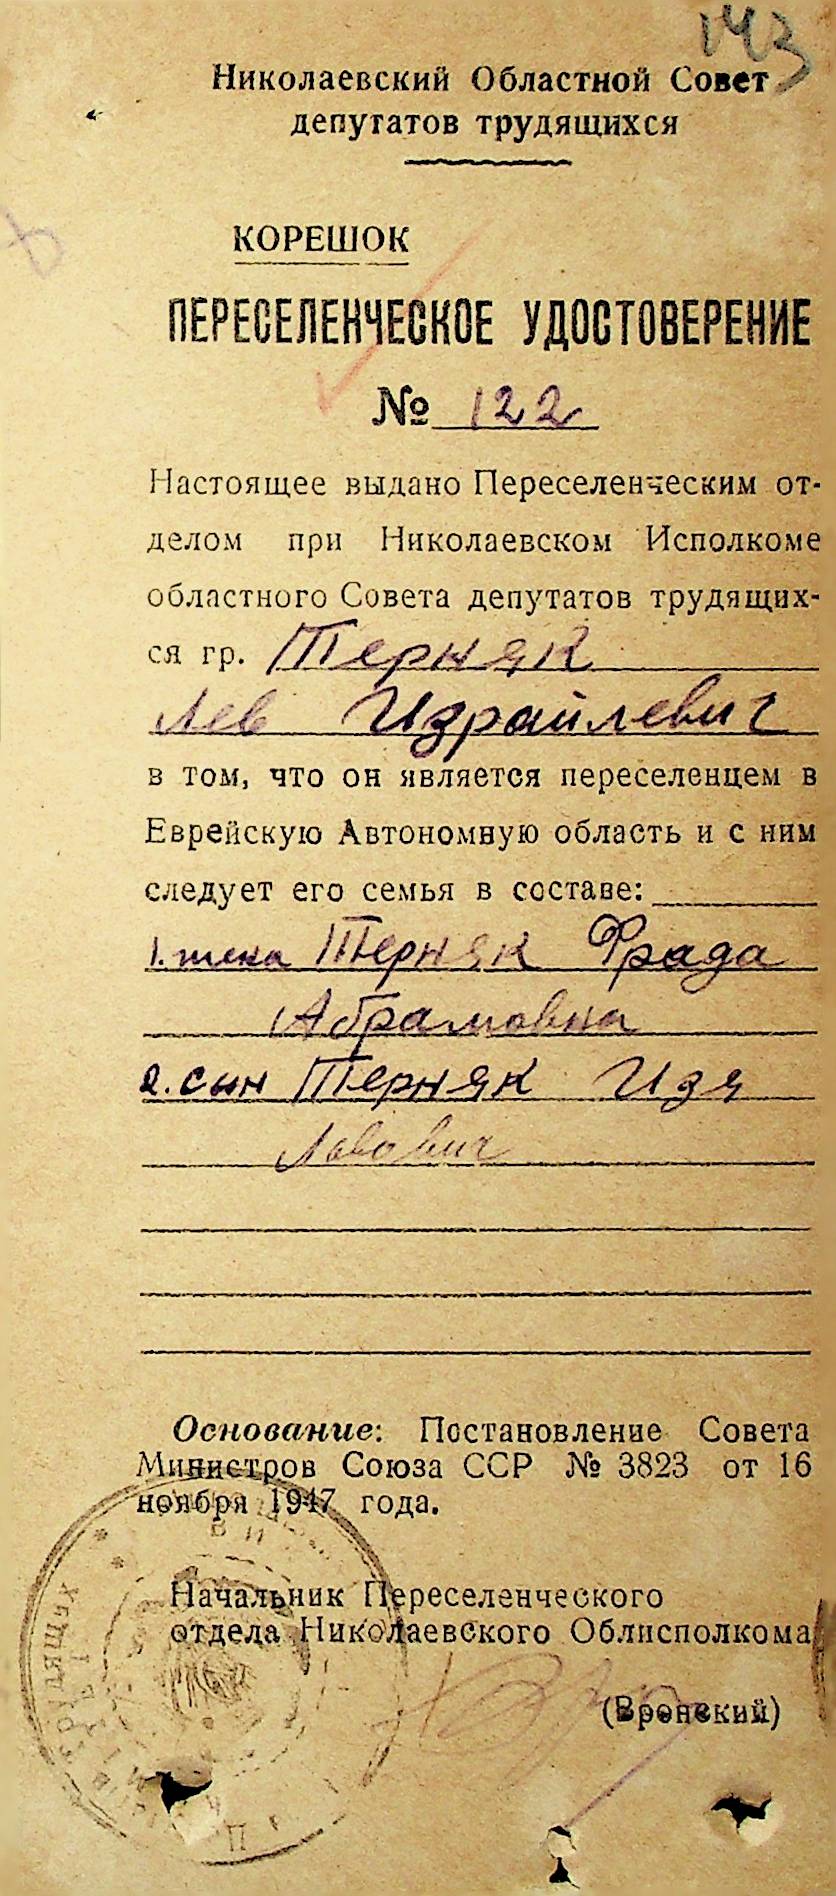 143
Николаевский Областной Совет
депутатов трудящихся
КОРЕШОК
ПЕРЕСЕЛЕНЧЕСКОЕ УДОСТОВЕРЕНИЕ
№ 122
Настоящее выдано Переселенческим от-
делом при Николаевском Исполкоме
областного Совета депутатов трудящих-
ся гр. Терняк
Лев Израйлевич
в том, что он является переселенцем в
Еврейскую Автономную область и с ним
следует его семья в составе:
1. жена Терняк Фрада
Абрамовна
2. сын Терняк Изя
Львович
Основание: Постановление Совета
Министров Союза ССР № 3823 от 16
ноября 1947 года.
Начальник Переселенческого
отдела Николаевского Облисполкома
(Вронский)